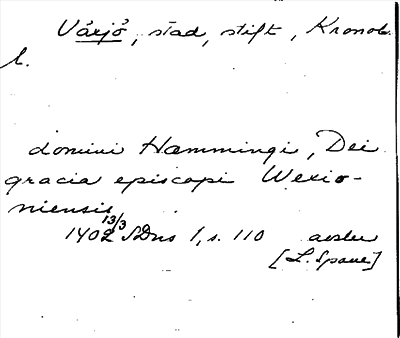 Växjö, stad, stift, Kronob.
l.
domini Hæmmingi, Dei
gracia episcopi Wexio-
niensis
1402 13/3 SDns 1, s. 110
[L. Spane]